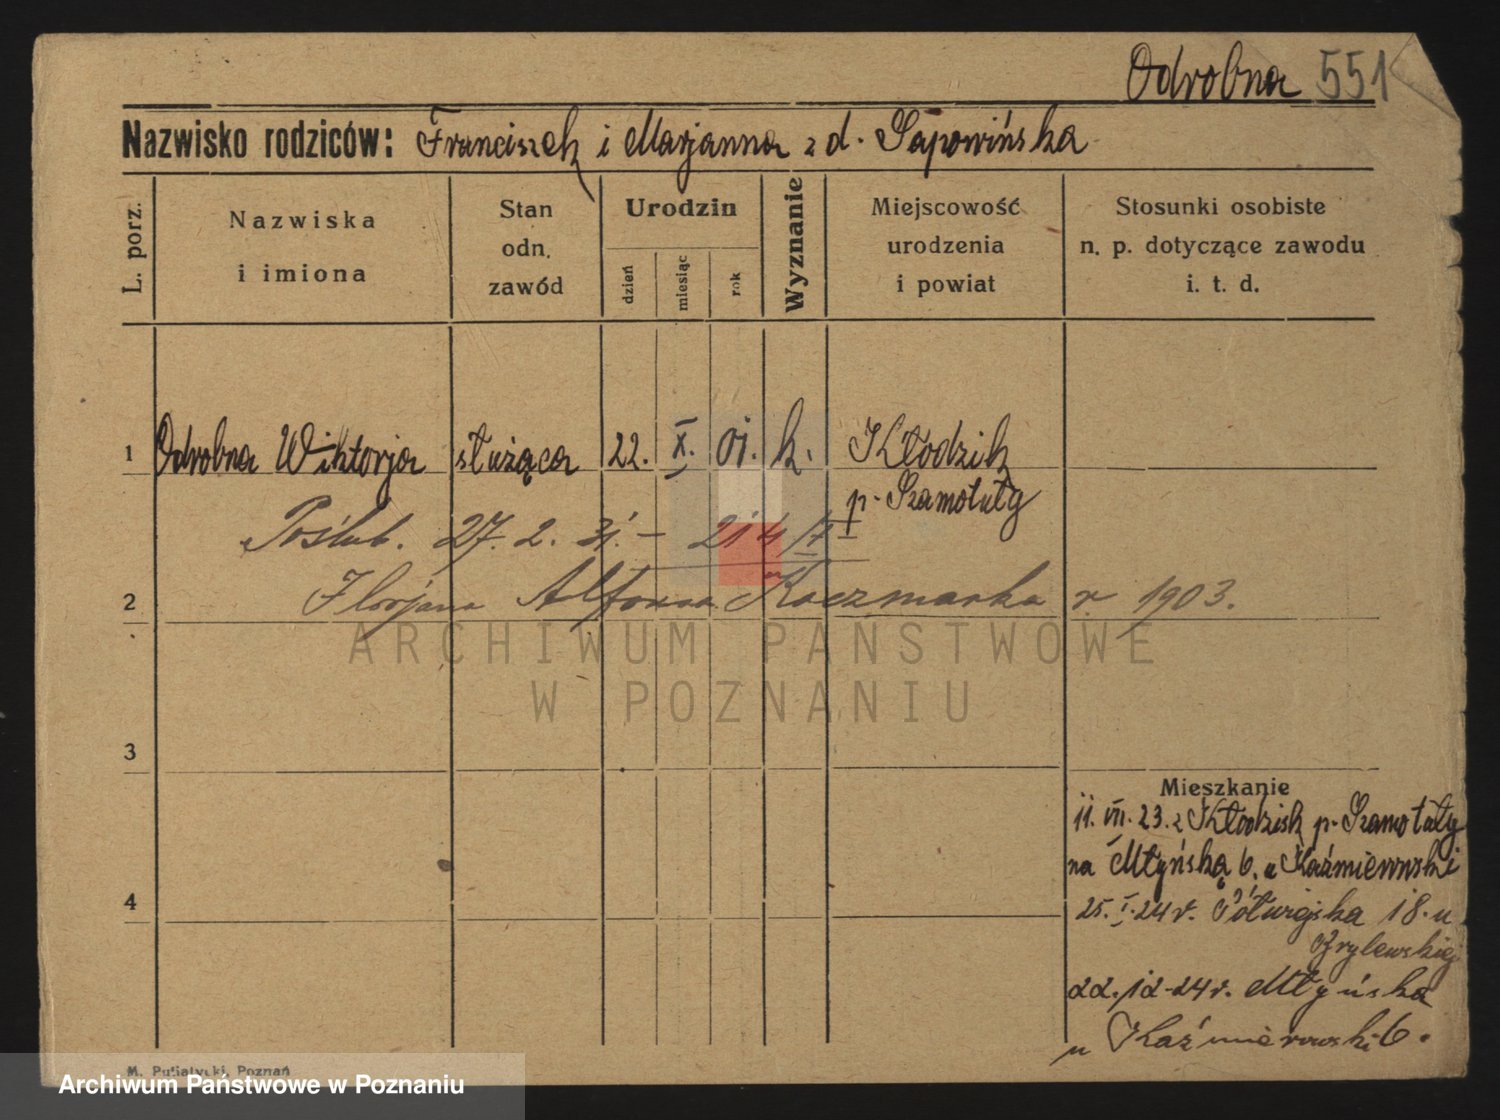 Odrobna 551
Nazwisko rodziców: Franciszek i Marjanna z d. Sapowińska
L. porz.
Nazwiska
i imiona
Stan
odn.
zawód
Urodzin
dzień
miesiąc
rok
Wyznanie
Miejscowość
urodzenia
i powiat
Stosunki osobiste
n. p. dotyczące zawodu
i. t. d.
1 Odrobna Wiktorja służąca 22. X. 01. k. Kłodzisk
p. Szamotuły
Poślub. 27. 2. 31. –
2 Florjana Alfonsa Kaczmarka r. 1903.
ARCHIWUM PAŃSTWOWE
W POZNANIU
3
Mieszkanie
11. VII. 23. z Kłodzisk p. Szamotuły
na Młyńską 6. u Kaźmierowski
4
25. I. 24 r. Półwiejska 18. u
22. 12. 24 r. Młyńska
u Kaźmierowski 6.
M. Putiatycki, Poznań
Archiwum Państwowe w Poznaniu